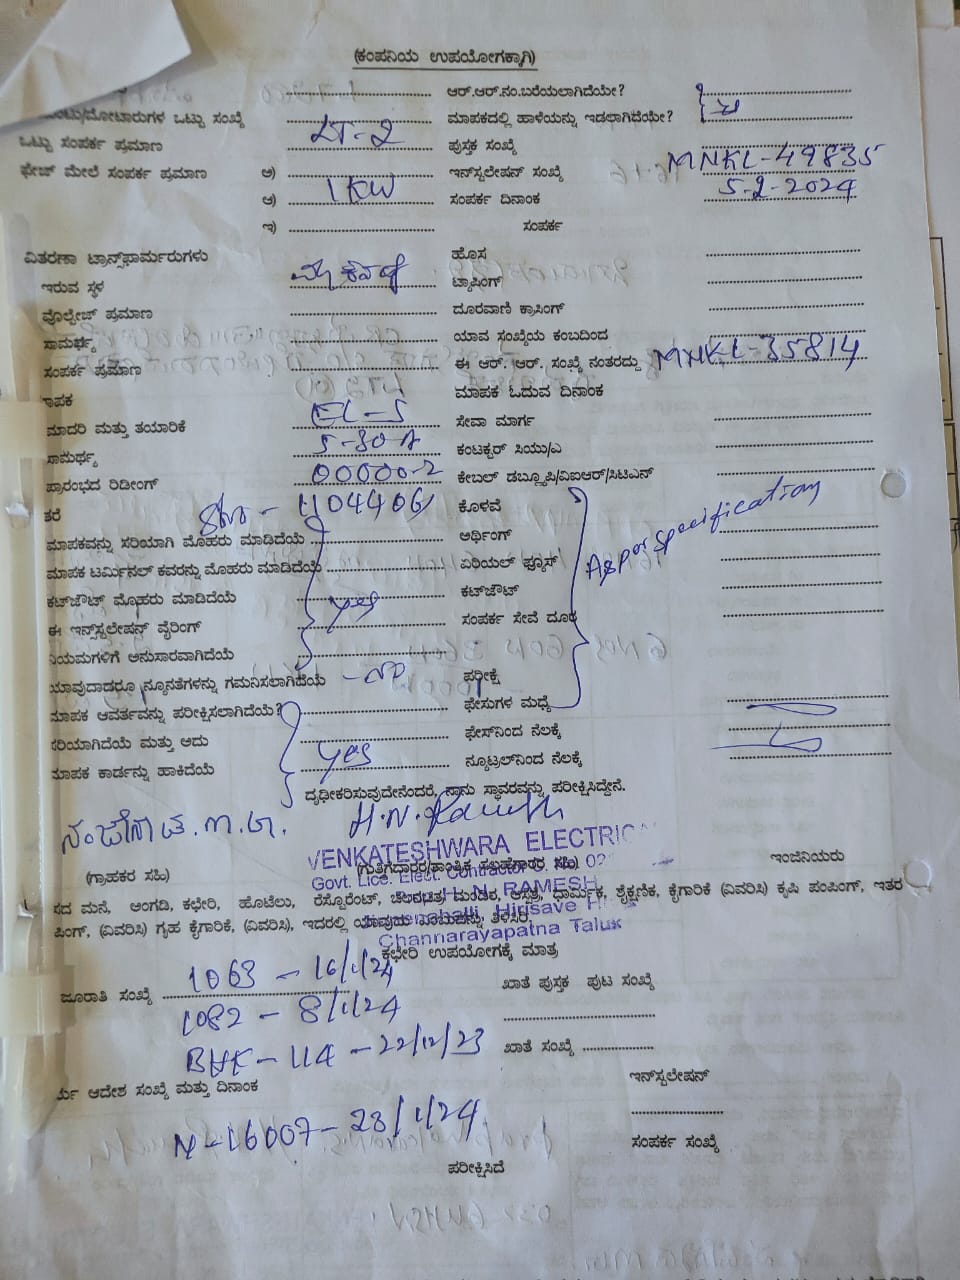 (ಕಂಪನಿಯ ಉಪಯೋಗಕ್ಕಾಗಿ)
ಆರ್.ಆರ್.ನಂ.ಬರೆಯಲಾಗಿದೆಯೇ?
ಒಟ್ಟು ಸಂಖ್ಯೆ ಮಾಪಕದಲ್ಲಿ ಹಾಳೆಯನ್ನು ಇಡಲಾಗಿದೆಯೇ?
ಒಟ್ಟು ಸಂಪರ್ಕ ಪ್ರಮಾಣ LT-2 ಪುಸ್ತಕ ಸಂಖ್ಯೆ
ಫೇಜ್ ಮೇಲೆ ಸಂಪರ್ಕ ಪ್ರಮಾಣ ಅ) ಇನ್‌ಸ್ಟಲೇಷನ್ ಸಂಖ್ಯೆ MNKL-49835
ಆ) 1KW ಸಂಪರ್ಕ ದಿನಾಂಕ 5-2-2024
ಇ) ಸಂಪರ್ಕ
ವಿತರಣಾ ಟ್ರಾನ್ಸ್‌ಫಾರ್ಮರುಗಳು ಹೊಸ
ಇರುವ ಸ್ಥಳ ಟ್ಯಾಪಿಂಗ್
ವೋಲ್ಟೇಜ್ ಪ್ರಮಾಣ ದೂರವಾಣಿ ಕ್ರಾಸಿಂಗ್
ಸಾಮರ್ಥ್ಯ ಯಾವ ಸಂಖ್ಯೆಯ ಕಂಬದಿಂದ
ಸಂಪರ್ಕ ಪ್ರಮಾಣ ಈ ಆರ್. ಆರ್. ಸಂಖ್ಯೆ ನಂತರದ್ದು MNKL-35814
ಮಾಪಕ ಓದುವ ದಿನಾಂಕ
ಮಾದರಿ ಮತ್ತು ತಯಾರಿಕೆ EL-S ಸೇವಾ ಮಾರ್ಗ
ಸಾಮರ್ಥ್ಯ 5-30A ಕಂಟಕ್ಟರ್ ಸಿಯು/ಎ
ಪ್ರಾರಂಭದ ರಿಡೀಂಗ್ 00000-2 ಕೇಬಲ್ ಡಬ್ಲ್ಯೂಪಿ/ವಿಐಆರ್/ಸಿಟಿಎನ್
ತರೆ 1104406 ಕೊಳವೆ
ಮಾಪಕವನ್ನು ಸರಿಯಾಗಿ ಮೊಹರು ಮಾಡಿದೆಯೆ ಅರ್ಥಿಂಗ್ As per specification
ಮಾಪಕ ಟರ್ಮಿನಲ್ ಕವರನ್ನು ಮೊಹರು ಮಾಡಿದೆಯೆ ಏರಿಯಲ್ ಫ್ಯೂಸ್
ಕಟ್‌ಔಟ್ ಮೊಹರು ಮಾಡಿದೆಯೆ Yes ಕಟ್‌ಔಟ್
ಈ ಇನ್‌ಸ್ಟಲೇಷನ್ ವೈರಿಂಗ್ ಸಂಪರ್ಕ ಸೇವೆ ದೂರ
ನಿಯಮಗಳಿಗೆ ಅನುಸಾರವಾಗಿದೆಯೆ
ಯಾವುದಾದರೂ ನ್ಯೂನತೆಗಳನ್ನು ಗಮನಿಸಲಾಗಿದೆಯೆ - NO ಪರೀಕ್ಷೆ
ಮಾಪಕ ಆವರ್ತವನ್ನು ಪರೀಕ್ಷಿಸಲಾಗಿದೆಯೆ? ಫೇಸುಗಳ ಮಧ್ಯೆ
ಸರಿಯಾಗಿದೆಯೆ ಮತ್ತು ಅದು Yes ಫೇಸ್‌ನಿಂದ ನೆಲಕ್ಕೆ
ಮಾಪಕ ಕಾರ್ಡನ್ನು ಹಾಕಿದೆಯೆ ನ್ಯೂಟ್ರಲ್‌ನಿಂದ ನೆಲಕ್ಕೆ
ದೃಢೀಕರಿಸುವುದೇನೆಂದರೆ, ನಾನು ಸ್ಥಾವರವನ್ನು ಪರೀಕ್ಷಿಸಿದ್ದೇನೆ.
H.N. Ramesh
VENKATESHWARA ELECTRIC
(ಗ್ರಾಹಕರ ಸಹಿ) (ಗುತ್ತಿಗೆದಾರರ/ತಾಂತ್ರಿಕ ಸಲಹೆಗಾರರ ಸಹಿ) ಇಂಜಿನಿಯರು
Govt. Lice. Elect. Contractor
H.N. RAMESH
ಮನೆ, ಅಂಗಡಿ, ಕಛೇರಿ, ಹೊಟೆಲು, ರೆಸ್ಟೋರೆಂಟ್, ಚಲನಚಿತ್ರ ಮಂದಿರ, ಆಸ್ಪತ್ರೆ, ಧಾರ್ಮಿಕ, ಶೈಕ್ಷಣಿಕ, ಕೈಗಾರಿಕೆ (ವಿವರಿಸಿ) ಕೃಷಿ ಪಂಪಿಂಗ್, ಇತರ
ಪಿಂಗ್, (ವಿವರಿಸಿ) ಗೃಹ ಕೈಗಾರಿಕೆ, (ವಿವರಿಸಿ), ಇದರಲ್ಲಿ ಯಾವುದು ಎಂಬುದನ್ನು ತಿಳಿಸಿರಿ.
Hirisave
Channarayapatna Taluk
ಕಛೇರಿ ಉಪಯೋಗಕ್ಕೆ ಮಾತ್ರ
1063 - 16/1/24
ಜೂರಾತಿ ಸಂಖ್ಯೆ ಖಾತೆ ಪುಸ್ತಕ ಪುಟ ಸಂಖ್ಯೆ
1082 - 8/1/24
BHK-114 - 22/12/23 ಖಾತೆ ಸಂಖ್ಯೆ
ಆದೇಶ ಸಂಖ್ಯೆ ಮತ್ತು ದಿನಾಂಕ ಇನ್‌ಸ್ಟಲೇಷನ್
N-16007-28/1/24
ಸಂಪರ್ಕ ಸಂಖ್ಯೆ
ಪರೀಕ್ಷಿಸಿದೆ